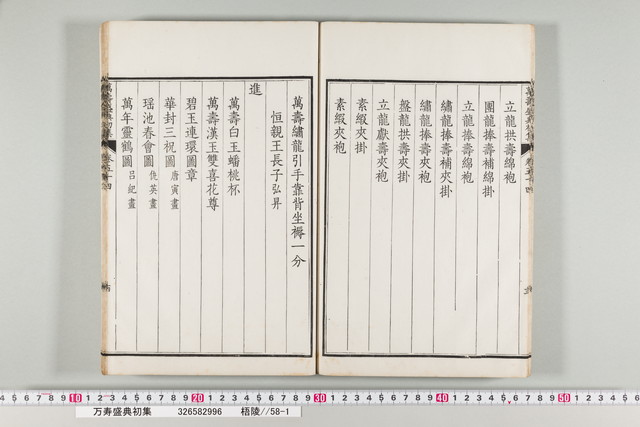 立龍拱壽綿袍
團龍捧壽補綿掛
立龍捧壽夾袍
繡龍捧壽補夾掛
繡龍捧壽夾袍
盤龍拱壽夾掛
立龍獻壽夾袍
素緞夾掛
素緞夾袍
萬壽繡龍引手靠背坐褥一分
恒親王長子弘昇
進
萬壽白玉蟠桃杯
萬壽漢玉雙喜花尊
碧玉連環圖章
華封三祝圖 唐寅畫
瑶池春會圖 仇英畫
萬年靈鶴圖 吕紀畫
10 20 30 40 50
万寿盛典初集 326582996 梧陵//58-1